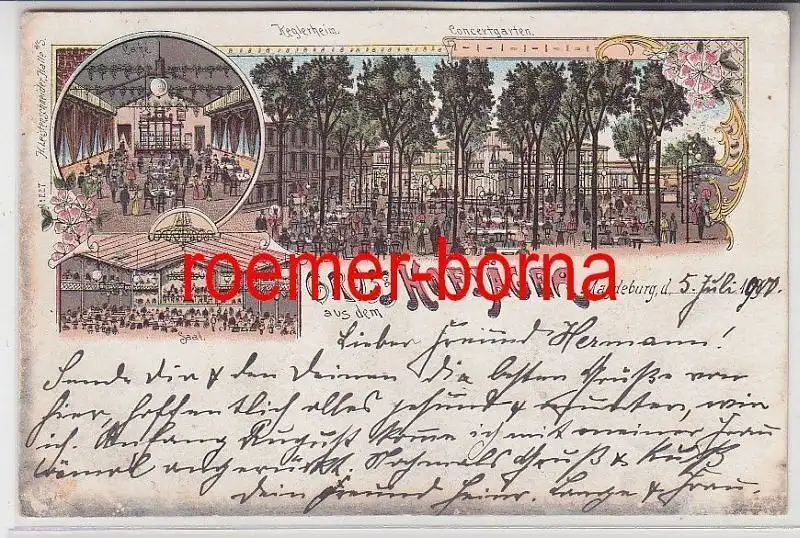 Keglerheim. Concertgarten.
Café.
Saal.
roemer-borna
aus dem
Magdeburg, d. 5. Juli
Lieber Freund Hermann!
Sende Dir & den Deinen die besten Grüße von
hier, hoffentlich alles gesund & munter, wie
ich. Anfang August komme ich mit meiner Frau
angerückt. Nochmals Gruß & Kuß
Dein Freund Heinr. Lange & Frau.